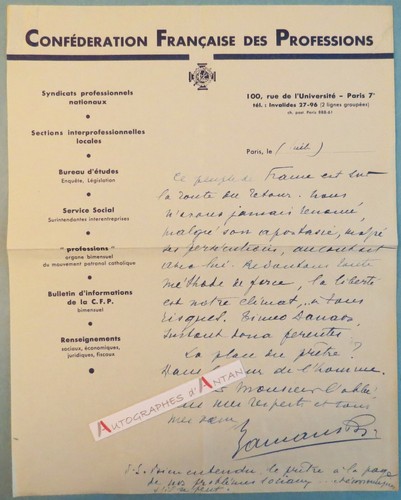 CONFÉDÉRATION FRANÇAISE DES PROFESSIONS
Syndicats professionnels
nationaux
Sections interprofessionnelles
locales
Bureau d'études
Enquête, Législation
Service Social
Surintendantes interentreprises
"professions"
organe bimensuel
du mouvement patronal catholique
Bulletin d'informations
de la C.F.P.
bimensuel
Renseignements
sociaux, économiques,
juridiques, fiscaux
100, rue de l'Université - Paris 7e
tél. : Invalides 27-96 (2 lignes groupées)
ch. post Paris 888-61
Paris, le
Ce peuple de France est sur
la route du retour. Nous
n'avons jamais renoncé,
malgré son apostasie, malgré
ses persécutions, au contact
avec lui. Redoutons toute
méthode de force, la liberté
est notre climat, à tous
risques. Timeo Danaos,
La place du prêtre ?
Dans le cœur de l'homme.
Monsieur l'abbé
mes respects et tous
mes vœux
AUTOGRAPHES D'ANTAN
le prêtre à la page
de nos problèmes sociaux